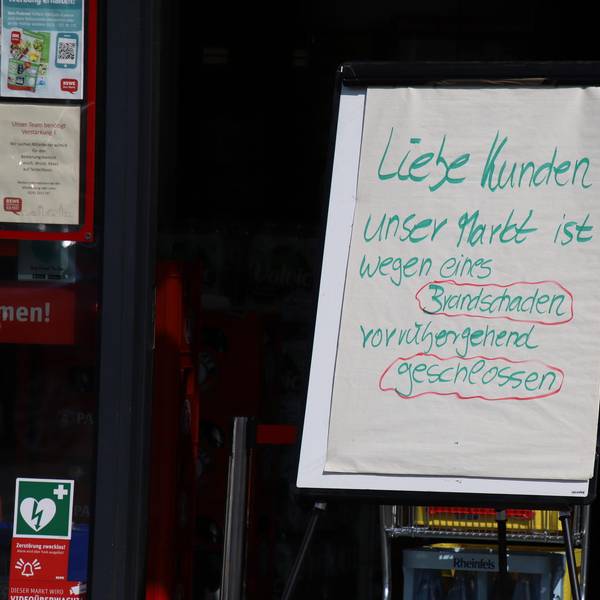 Werbung erhalten!
REWE
Unser Team benötigt
Verstärkung !
REWE
men!
Zerstörung zwecklos!
REWE
DIESER MARKT WIRD
VIDEOÜBERWACHT
Liebe Kunden
unser Markt ist
wegen eines
Brandschaden
vorrühergehend
geschlossen
Rheinfels